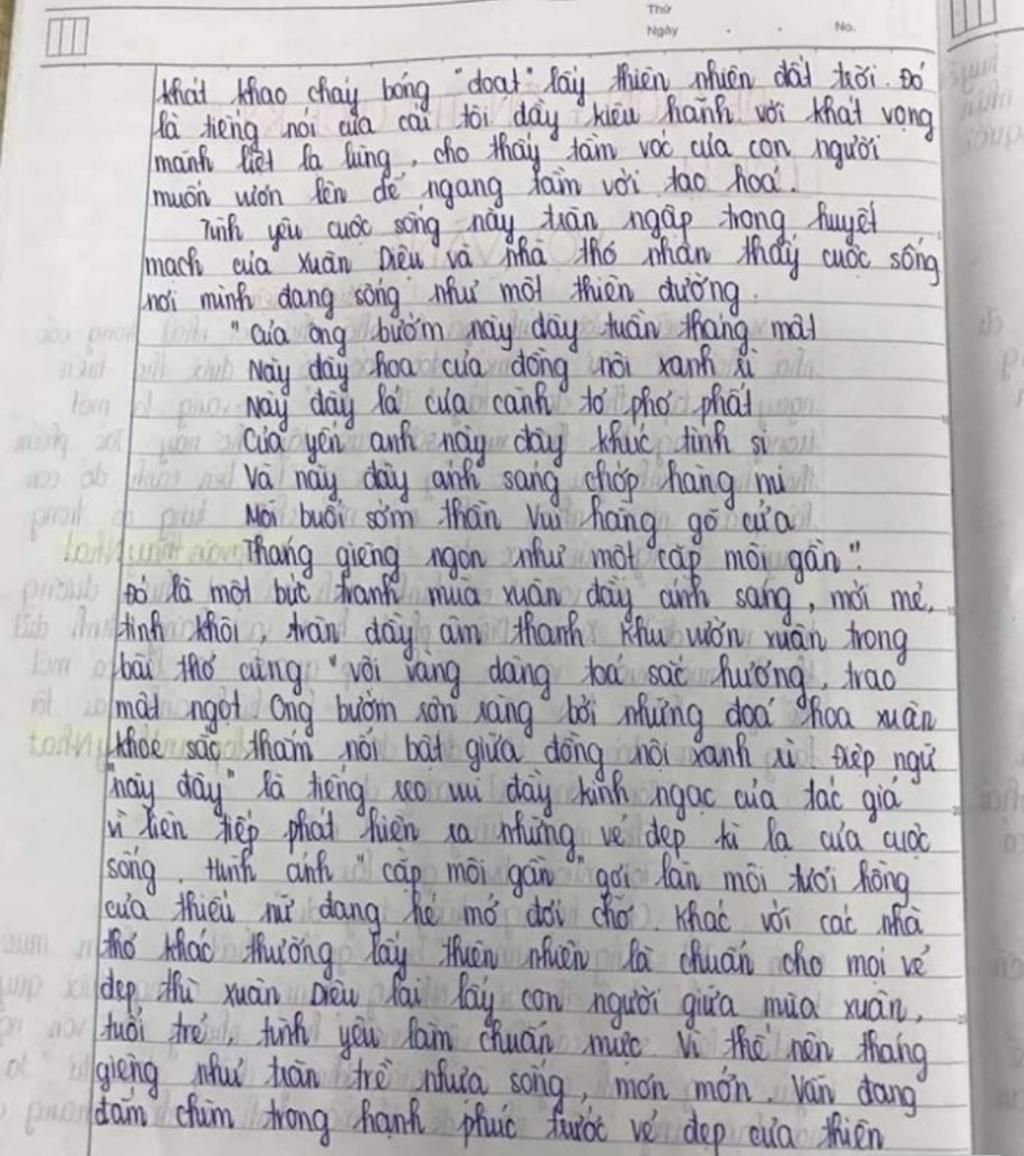 Thứ
Ngày No.
khát khao cháy bỏng "đoạt" lấy thiên nhiên đất trời. Đó
là tiếng nói của cái tôi đầy kiêu hãnh với khát vọng
mãnh liệt lạ lùng, cho thấy tầm vóc của con người
muốn vươn lên để ngang tầm với tạo hoá.
Tình yêu cuộc sống này tràn ngập trong huyết
mạch của Xuân Diệu và nhà thơ nhận thấy cuộc sống
nơi mình đang sống như một thiên đường.
"Của ong bướm này đây tuần tháng mật
Này đây hoa của đồng nội xanh rì
Này đây lá của cành tơ phơ phất
Của yến anh này đây khúc tình si
Và này đây ánh sáng chớp hàng mi
Mỗi buổi sớm thần Vui hằng gõ cửa
Tháng giêng ngon như một cặp môi gần".
Đó là một bức tranh mùa xuân đầy ánh sáng, mới mẻ,
tinh khôi, tràn đầy âm thanh. Khu vườn xuân trong
bài thơ cũng "vội vàng dâng toả sắc hương, trao
mật ngọt. Ong bướm rộn ràng bởi những đoá hoa xuân
khoe sắc thắm nổi bật giữa đồng nội xanh rì. Điệp ngữ
"này đây" là tiếng reo vui đầy kinh ngạc của tác giả
vì liên tiếp phát hiện ra những vẻ đẹp kì lạ của cuộc
sống. Hình ảnh "cặp môi gần" gợi làn môi tươi hồng
của thiếu nữ đang hé mở đợi chờ. Khác với các nhà
thơ khác thường lấy thiên nhiên là chuẩn cho mọi vẻ
đẹp thì Xuân Diệu lại lấy con người giữa mùa xuân,
tuổi trẻ, tình yêu làm chuẩn mực. Vì thế nên tháng
giêng như tràn trề nhựa sống, mơn mởn. Vẫn đang
đắm chìm trong hạnh phúc trước vẻ đẹp của thiên